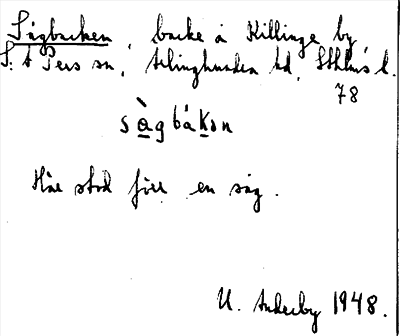 Sågbacken, backe å Killinge by
S:t Pers sn, Ærlinghundra hd, Sthlms l.
78
sὰgbákən
Här stod förr en såg.
U. 1948.